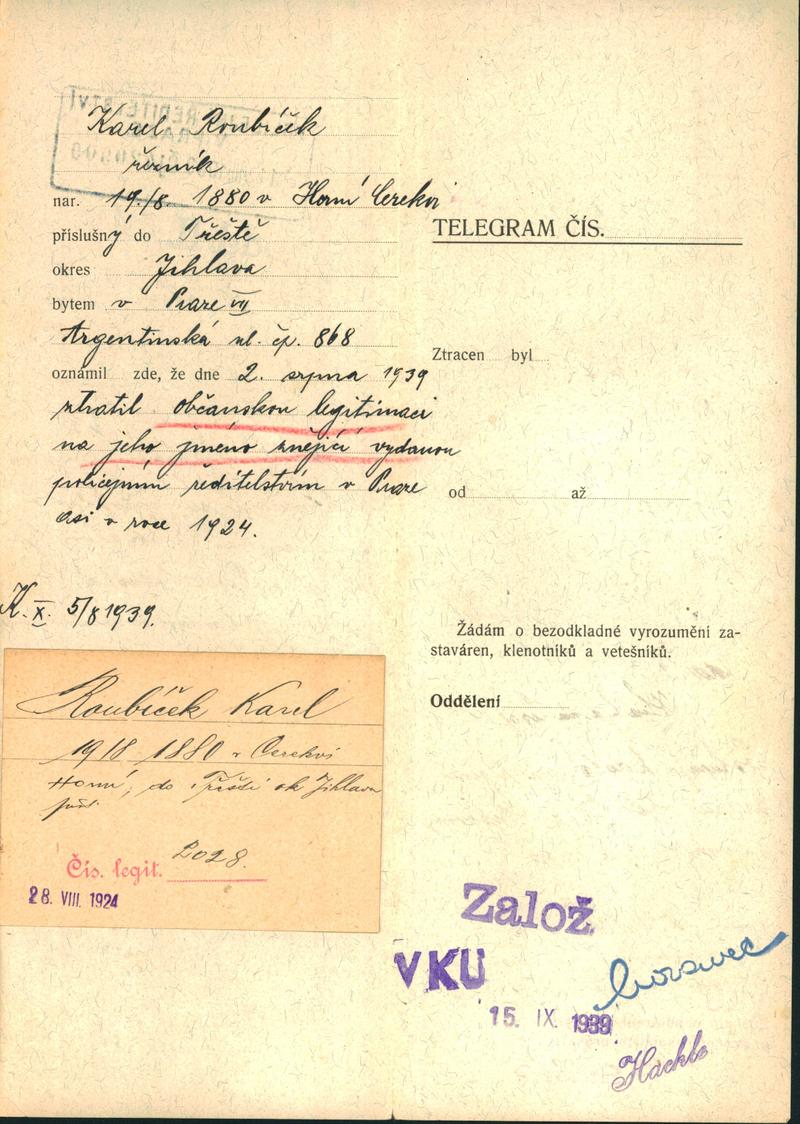 Karel Roubíček
řezník
nar. 19./8. 1880 v Horní Cerekvi
příslušný do Třeště
okres Jihlava
bytem v Praze VII
Argentinská ul. čp. 868
oznámil zde, že dne 2. srpna 1939
ztratil občanskou legitimaci
na jeho jméno znějící vydanou
policejním ředitelstvím v Praze
asi v roce 1924.
K. X. 5/8 1939.
Roubíček Karel
19/8 1880 v Cerekvi
Horní, do Třeště ok Jihlava
Čís. legit. 2028.
28. VIII. 1924
TELEGRAM ČÍS.
Ztracen byl
od až
Žádám o bezodkladné vyrozumění za-
staváren, klenotníků a vetešníků.
Oddělení
Založ
VKU
15. IX. 1939